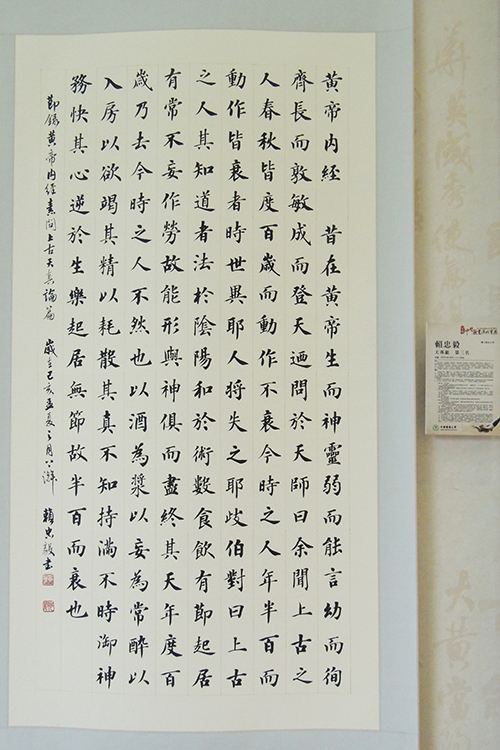 黃帝內經 昔在黃帝生而神靈弱而能言幼而徇
齊長而敦敏成而登天迺問於天師曰余聞上古之
人春秋皆度百歲而動作不衰今時之人年半百而
動作皆衰者時世異耶人將失之耶歧伯對曰上古
之人其知道者法於陰陽和於術數食飲有節起居
有常不妄作勞故能形與神俱而盡終其天年度百
歲乃去今時之人不然也以酒為漿以妄為常醉以
入房以欲竭其精以耗散其真不知持滿不時御神
務快其心逆於生樂起居無節故半百而衰也
節錄黃帝內經素問上古天真論篇 歲在己亥孟夏之月 賴忠毅書
賴忠毅
大專組 第三名
大黃當